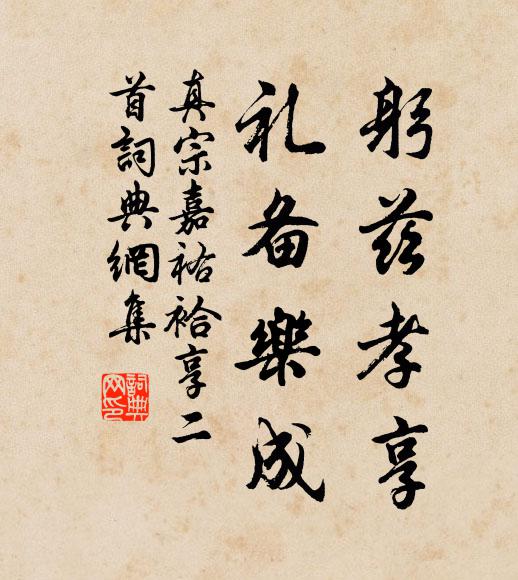 躬茲孝享
礼备樂成
真宗嘉祐祫享二
首詞典網集
詞典網印